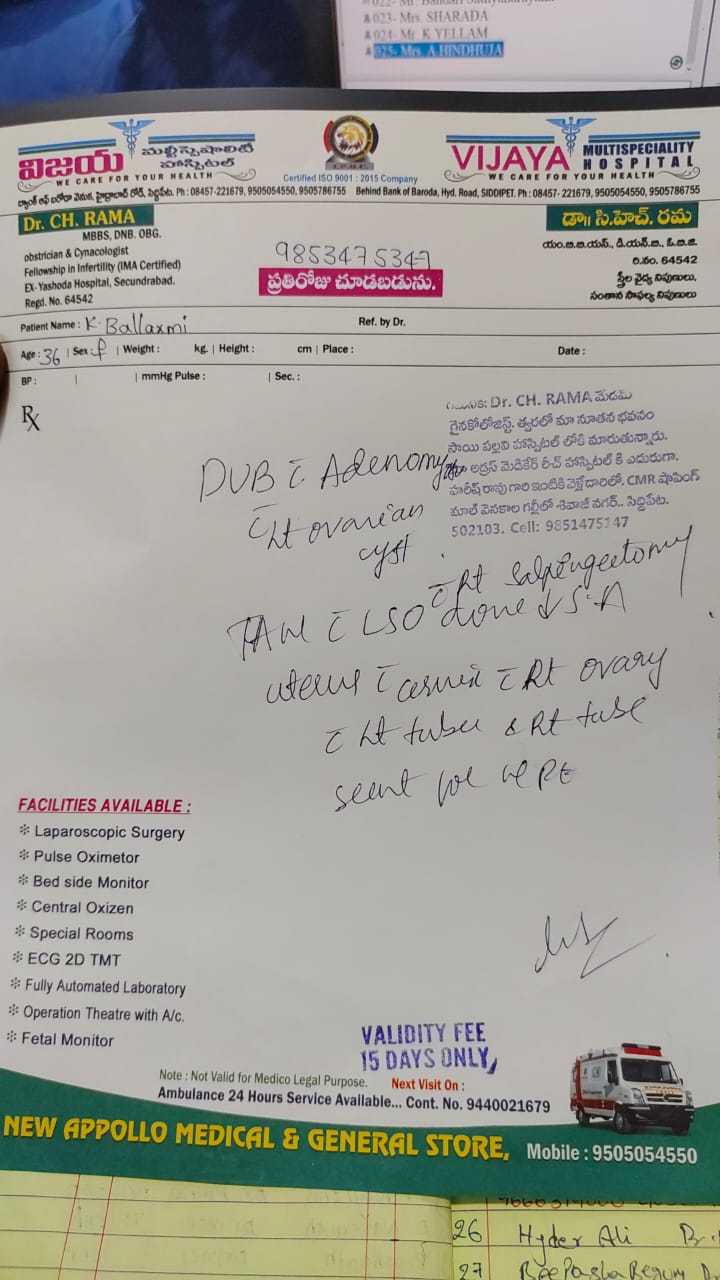 023- Mrs. SHARADA
024- Mr. K YELLAM
025- Mrs. A HINDHUJA
విజయ మల్టీస్పెషాలిటీ హాస్పిటల్
WE CARE FOR YOUR HEALTH
Certified ISO 9001 : 2015 Company
VIJAYA MULTISPECIALITY HOSPITAL
WE CARE FOR YOUR HEALTH
బ్యాంక్ ఆఫ్ బరోడా వెనుక, హైద్రాబాద్ రోడ్, సిద్దిపేట. Ph : 08457-221679, 9505054550, 9505786755
Behind Bank of Baroda, Hyd. Road, SIDDIPET. Ph : 08457- 221679, 9505054550, 9505786755
Dr. CH. RAMA
MBBS, DNB. OBG.
obstrician & Cynacologist
Fellowship in Infertility (IMA Certified)
EX- Yashoda Hospital, Secundrabad.
Regd. No. 64542
9853475347
ప్రతిరోజు చూడబడును.
డా॥ సి.హెచ్. రమ
యం.బి.బి.యస్., డి.యన్.బి., ఓ.బి.జి.
రి.నం. 64542
స్త్రీల వైద్య నిపుణులు,
సంతాన సాఫల్య నిపుణులు
Patient Name : K. Ballaxmi
Ref. by Dr.
Age : 36 | Sex : f | Weight : kg. | Height : cm | Place : Date :
BP : | | mmHg Pulse : | Sec. :
Rx
Dr. CH. RAMA మేడమ్
గైనకోలోజిస్ట్. త్వరలో మా నూతన భవనం
సాయి పల్లవి హాస్పిటల్ లోకి మారుతున్నారు.
అడ్రస్ మెడికేర్ రీచ్ హాస్పిటల్ కి ఎదురుగా.
హరీష్ రావు గారి ఇంటికి వెళ్లేదారిలో, CMR షాపింగ్
మాల్ వెనకాల గల్లీలో శివాజీ నగర్.. సిద్దిపేట.
502103. Cell: 9851475147
DUB c̄ Adenomy
c̄ Lt ovarian
cyst.
c̄ Rt Salpingectomy
TAH c̄ LSO done S.A
uterus c̄ cervix c̄ Rt ovary
c̄ Lt tube & Rt tube
sent for HPE
FACILITIES AVAILABLE :
Laparoscopic Surgery
Pulse Oximetor
Bed side Monitor
Central Oxizen
Special Rooms
ECG 2D TMT
Fully Automated Laboratory
Operation Theatre with A/c.
Fetal Monitor
VALIDITY FEE
15 DAYS ONLY,
Note : Not Valid for Medico Legal Purpose. Next Visit On :
Ambulance 24 Hours Service Available... Cont. No. 9440021679
NEW APPOLLO MEDICAL & GENERAL STORE, Mobile : 9505054550
26 Hyder Ali
27 BeePasha Begum